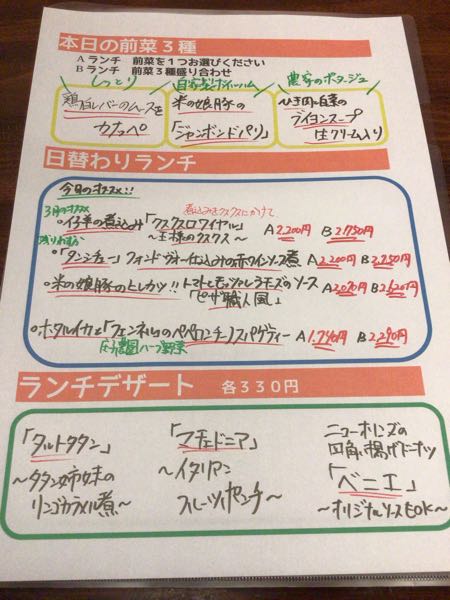 本日の前菜3種
Aランチ 前菜を1つお選びください
Bランチ 前菜3種盛り合わせ
しっとり
鶏白レバーのムースを
カナッペ
自家製ハム
米の娘豚の
「ジャンボンドパリ」
農家のポタージュ
ひき肉と白菜の
ライヨンスープ
生クリーム入り
日替わりランチ
今日のオススメ!!
3月のオススメ
煮込みをクスクスにかけて
・仔羊の煮込み「クスクスロワイヤル」 A2,200円 B2,750円
~王様のクスクス~
残りわずか
・「タンシチュー」フォンドヴォー仕込みの赤ワインソース煮 A2,200円 B2,750円
・米の娘豚のヒレカツ!!トマトとモッツァレラチーズのソース A2,070円 B2,620円
「ピザ職人風」
・ホタルイカと「フェンネル」のペペロンチーノスパゲティー A1,740円 B2,290円
庄子農園ハーブ野菜
ランチデザート 各330円
「タルトタタン」
~タタン姉妹の
リンゴカラメル煮~
「マチェドニア」
~イタリアン
フルーツポンチ~
ニューオリンズの
四角い揚げドーナツ
「ベニエ」
~オリジナルソースもOK~